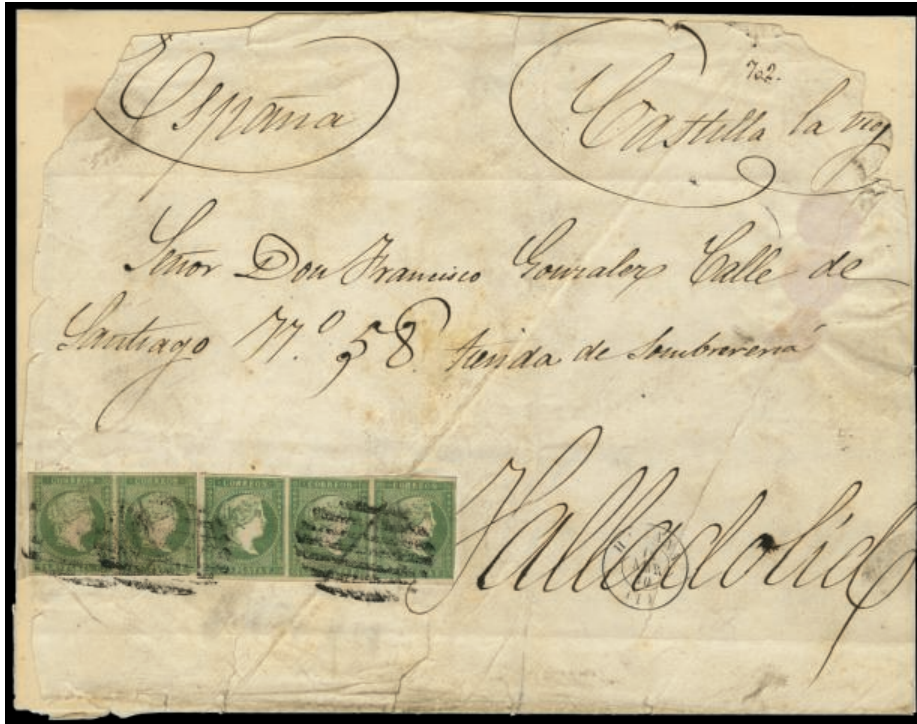 702.
España Castilla la viej
Señor Don Francisco Gonzalez Calle de
Santiago Nº 58. tienda de Sombrereria
Valladolid
CORREOS CORREOS CORREOS CORREOS CORREOS
ABR